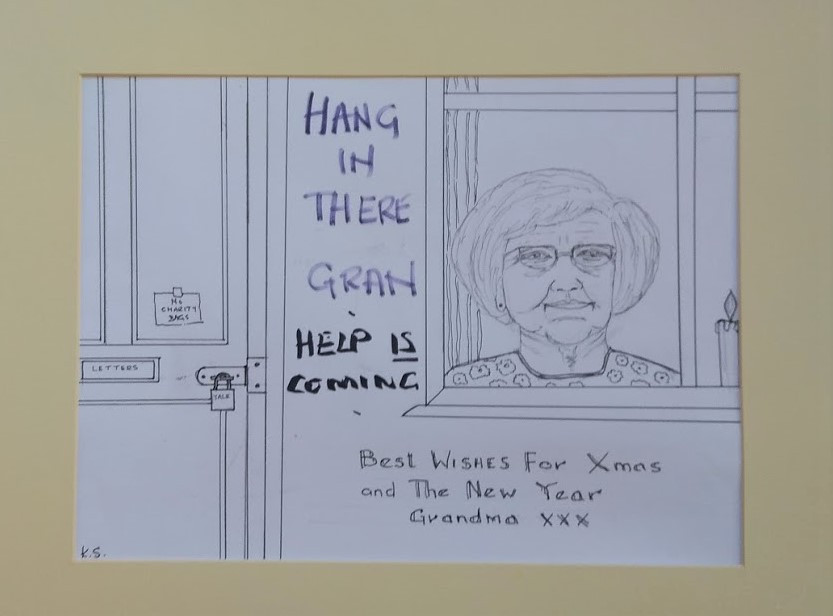 HANG
IN
THERE
GRAN
HELP IS
COMING
NO
CHARITY
BAGS
LETTERS
YALE
Best WISHES For Xmas
and The New Year
Grandma xxx
K.S.